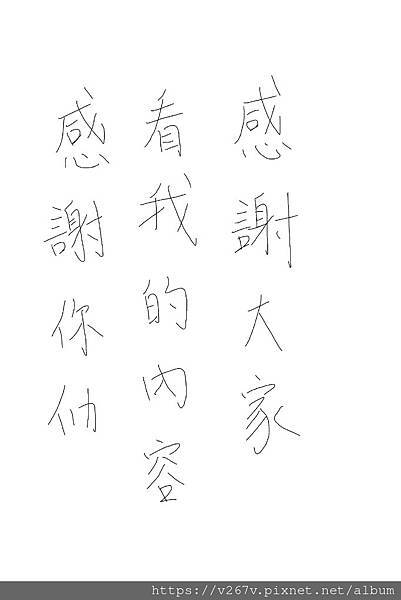 感謝大家
看我的內容
感謝你仂
https://v267v.pixnet.net/album